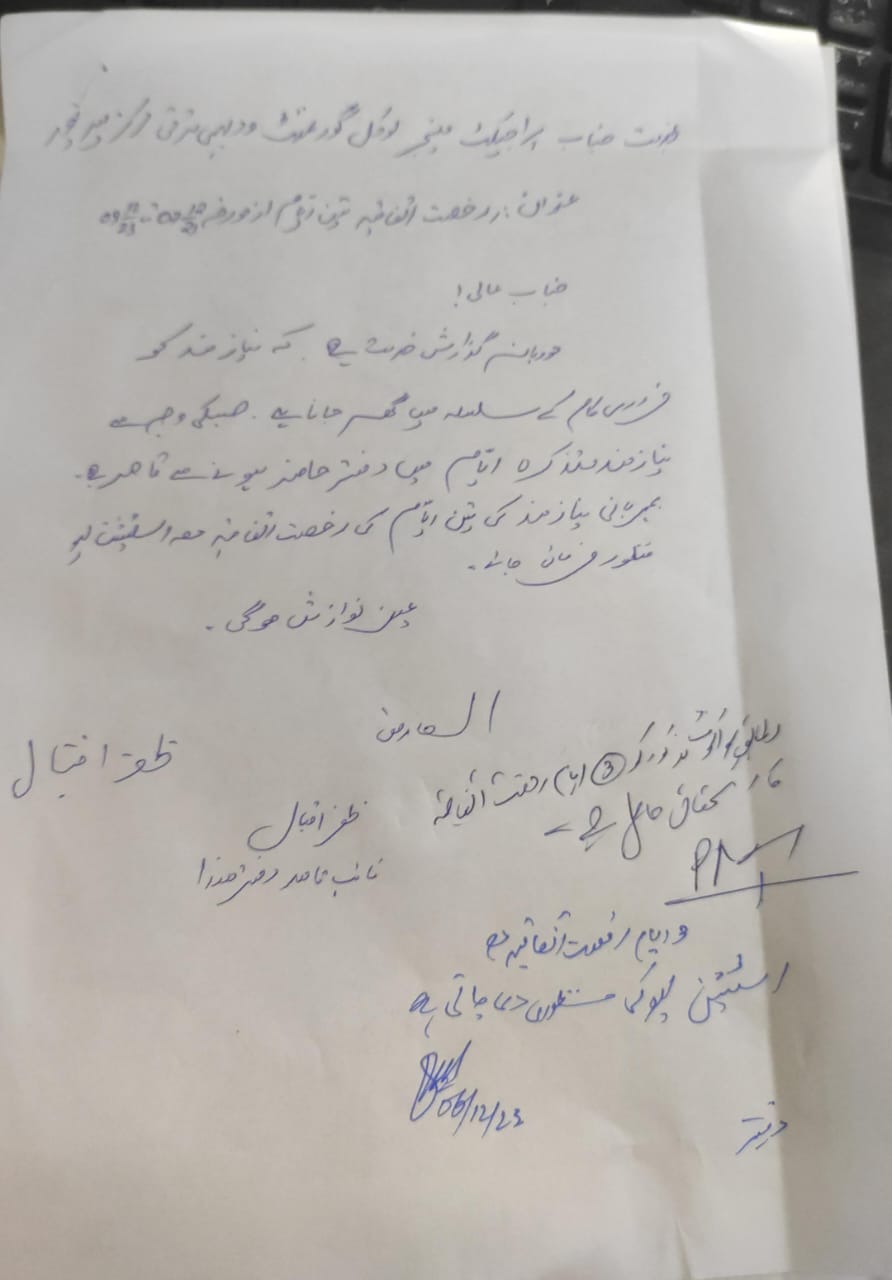 بخدمت جناب پراجیکٹ مینجر لوکل گورنمنٹ و دیہی ترقی مرکز
عنوان: رخصت اتفاقیہ تین ایام از مورخہ
جناب عالی!
مودبانہ گذارش خدمت ہے۔ کہ نیازمند کو
ضروری کام کے سلسلہ میں گھر جانا ہے۔ جسکی وجہ سے
نیازمند متذکرہ ایام میں دفتر حاضر ہونے سے قاصر ہے۔
بمہربانی نیازمند کی تین ایام کی رخصت اتفاقیہ معہ اسٹیشن لیو
منظور فرمائی جائے۔
عین نوازش ہوگی۔
العارض
ظفر اقبال
ظفر اقبال
نائب قاصد دفتر ھذا
مذکور کو 3 ایام رخصت اتفاقیہ
کا استحقاق حاصل ہے
ایام رخصت اتفاقیہ معہ
اسٹیشن لیو کی منظوری دی جاتی ہے
06/12/23
دفتر